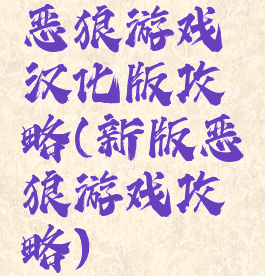 恶狼游戏
汉化版攻
略(新版恶
狼游戏攻
略)